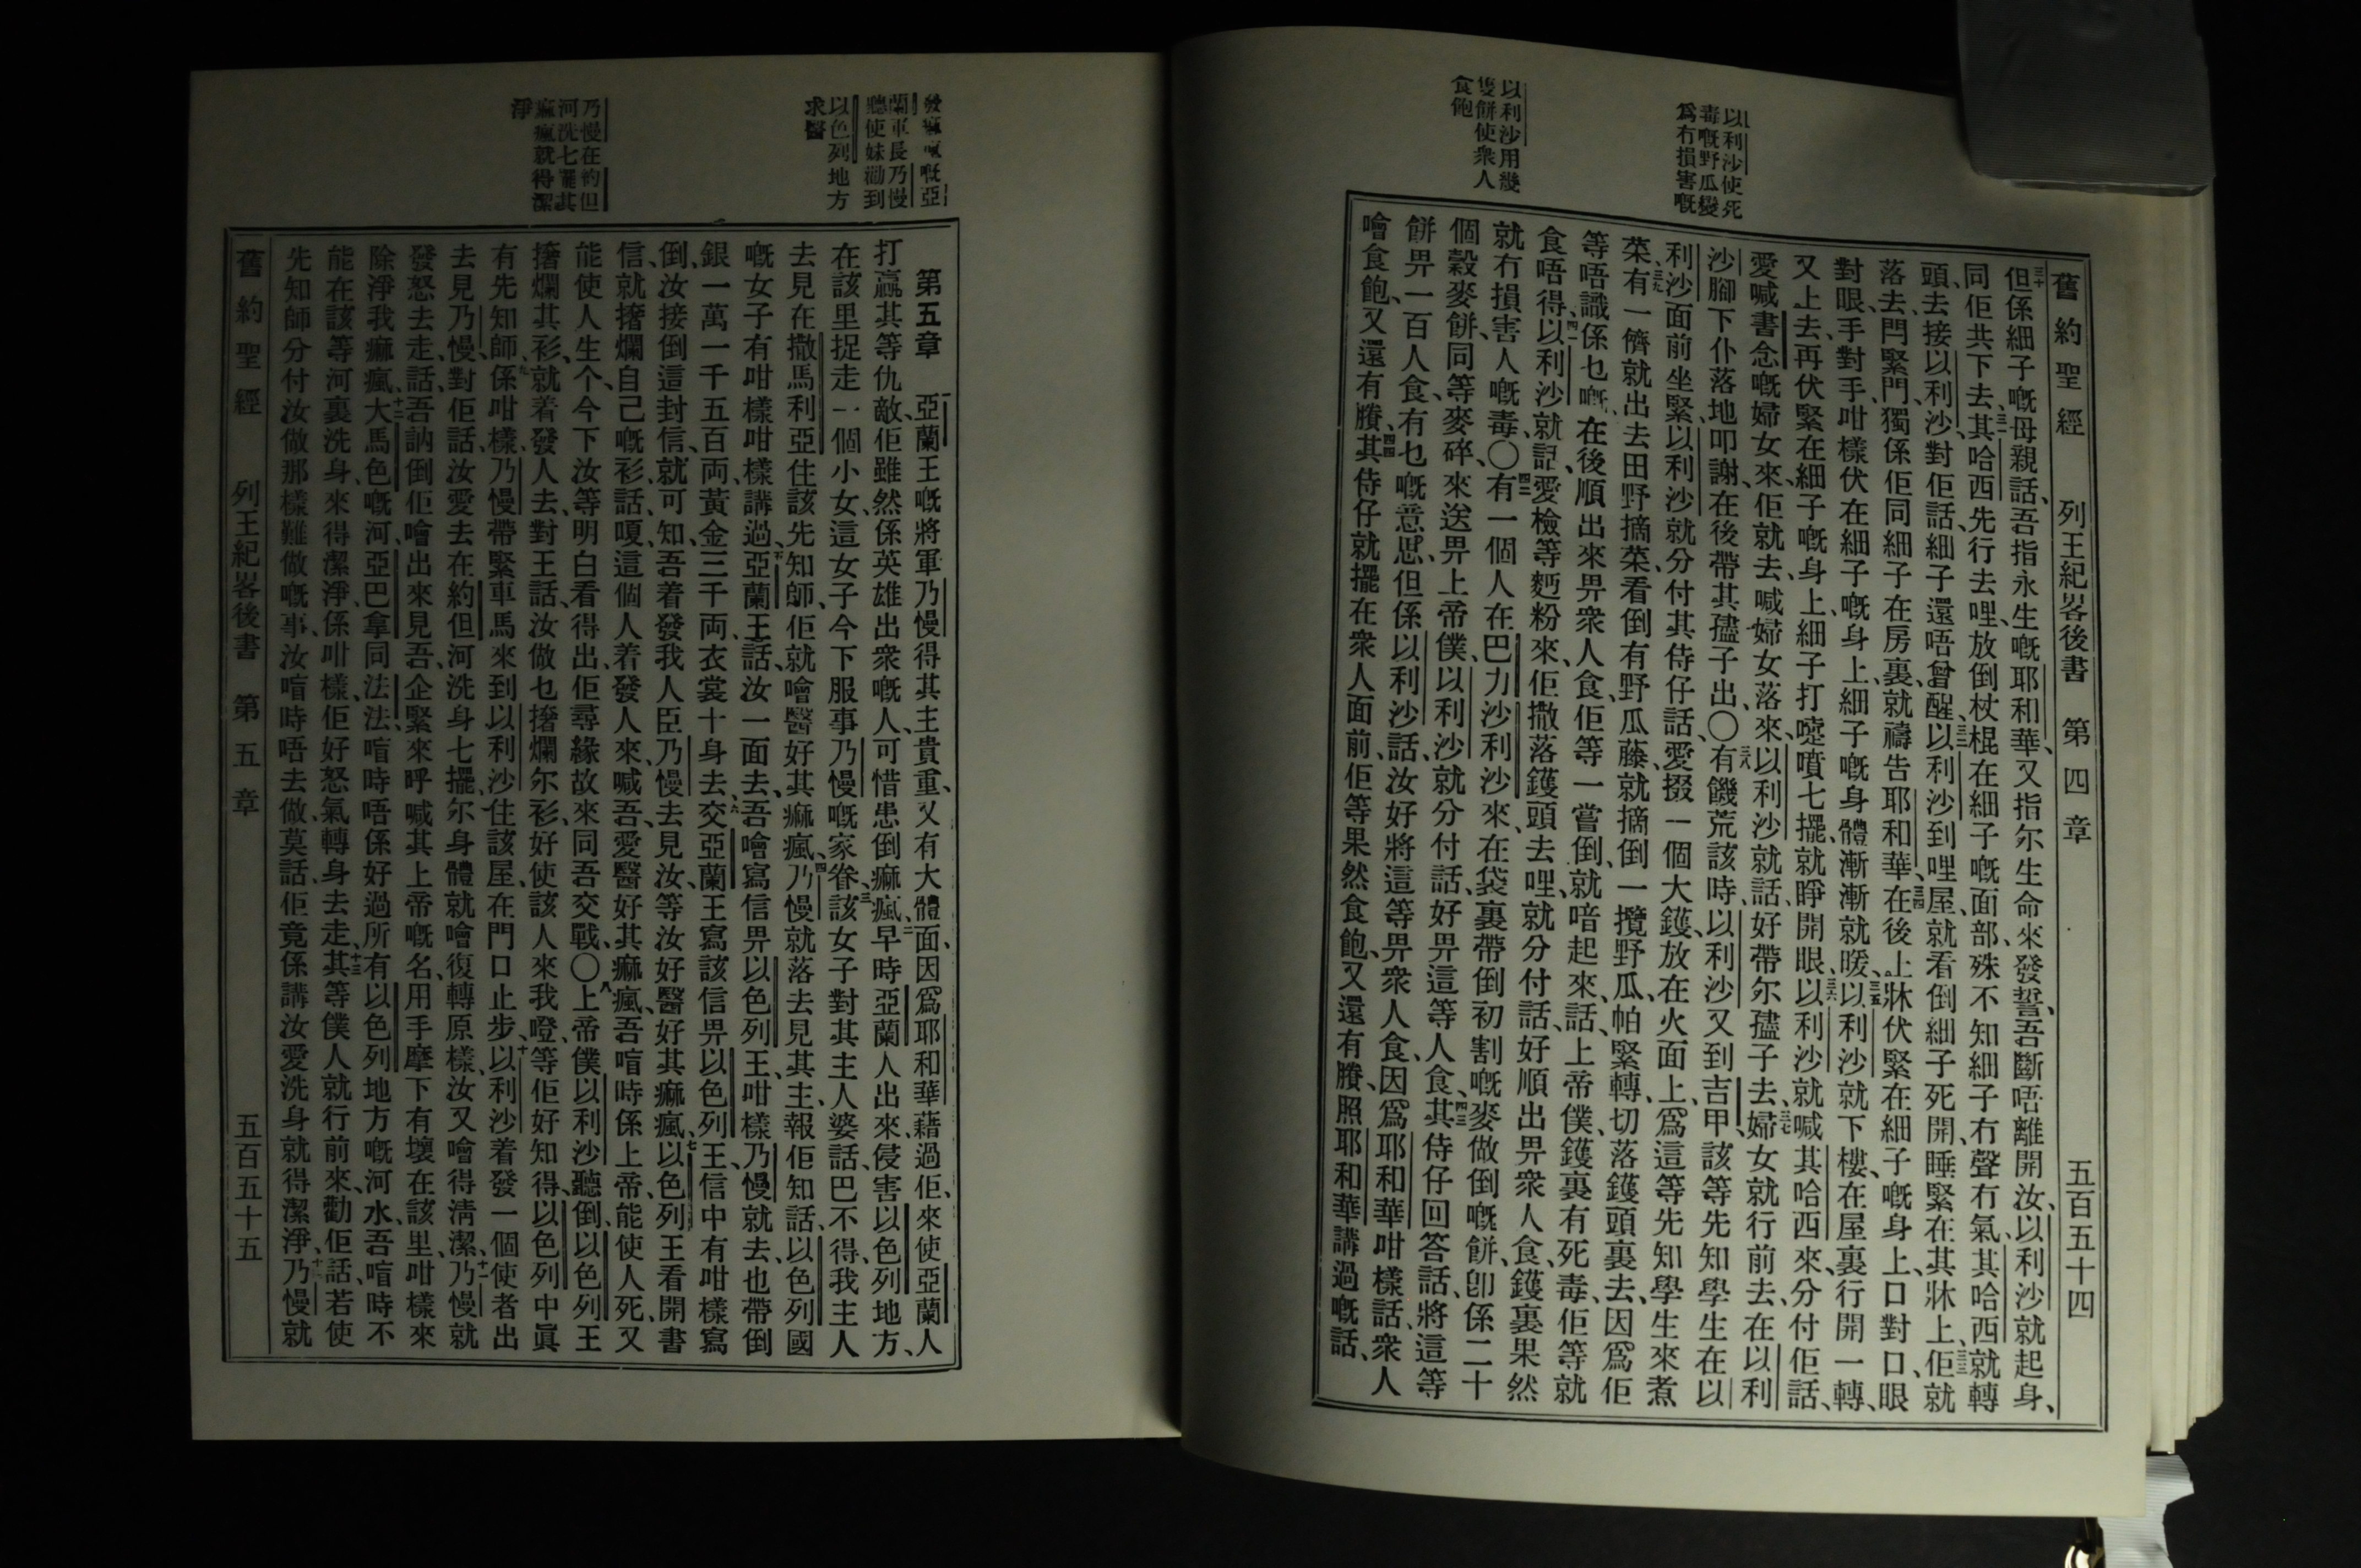 舊約聖經 列王紀畧後書 第四章 五百五十四
以利沙使死
毒嘅野瓜變
爲冇損害嘅
以利沙用幾
隻餅使衆人
食飽
三十但係細子嘅母親話、吾指永生嘅耶和華、又指尓生命來發誓、吾斷唔離開汝、以利沙就起身、
同佢共下去、三一其哈西先行去哩、放倒杖棍在細子嘅面部、殊不知細子冇聲冇氣、其哈西就轉
頭去接以利沙、對佢話、細子還唔曾醒、三二以利沙到哩屋、就看倒細子死開、睡緊在其牀上、三三佢就
落去、閂緊門、獨係佢同細子在房裏、就禱告耶和華、三四在後上牀伏緊在細子嘅身上、口對口、眼
對眼、手對手、咁樣伏在細子嘅身上、細子嘅身體漸漸就暖、三五以利沙就下樓、在屋裏行開一轉、
又上去、再伏緊在細子嘅身上、細子打嚏噴七擺、就睜開眼、三六以利沙就喊其哈西來、分付佢話、
愛喊書念嘅婦女來、佢就去、喊婦女落來、以利沙就話、好帶尓孻子去、三七婦女就行前去、在以利
沙腳下仆落地叩謝、在後帶其孻子出、〇三八有饑荒該時、以利沙又到吉甲、該等先知學生在以
利沙面前坐緊、以利沙就分付其侍仔話、愛掇一個大鑊、放在火面上、爲這等先知學生來煮
菜、三九有一儕就出去田野摘菜、看倒有野瓜藤、就摘倒一攬野瓜、帕緊轉、切落鑊頭裏去、因爲佢
等唔識係乜嘅、四十在後順出來畀衆人食、佢等一嘗倒、就喑起來、話、上帝僕、鑊裏有死毒、佢等就
食唔得、四一以利沙就話、愛檢等麪粉來、佢撒落鑊頭去哩、就分付話、好順出畀衆人食、鑊裏果然
就冇損害人嘅毒、〇四二有一個人在巴力沙利沙來、在袋裏帶倒初割嘅麥做倒嘅餅、卽係二十
個穀麥餅、同等麥碎、來送畀上帝僕、以利沙就分付話、好畀這等人食、四三其侍仔回答話、將這等
餅畀一百人食、有乜嘅意思、但係以利沙話、汝好將這等畀衆人食、因爲耶和華咁樣話、衆人
噲食飽、又還有賸、四四其侍仔就擺在衆人面前、佢等果然食飽、又還有賸、照耶和華講過嘅話、
發痲瘋嘅亞
蘭軍長乃慢
聽使妹勸到
以色列地方
求醫
乃慢在約但
河洗七擺其
痲瘋就得潔
淨
第五章 一亞蘭王嘅將軍乃慢、得其主貴重、又有大體面、因爲耶和華藉過佢、來使亞蘭人
打贏其等仇敵、佢雖然係英雄出衆嘅人、可惜患倒痲瘋、二早時亞蘭人出來、侵害以色列地方、
在該里捉走一個小女、這女子今下服事乃慢嘅家眷、三該女子對其主人婆話、巴不得我主人
去見在撒馬利亞住該先知師、佢就噲醫好其痲瘋、四乃慢就落去見其主、報佢知話、以色列國
嘅女子有咁樣咁樣講過、五亞蘭王話、汝一面去、吾噲寫信畀以色列王、咁樣乃慢就去、也帶倒
銀一萬一千五百両、黃金三千両、衣裳十身去、六交亞蘭王寫該信畀以色列王、信中有咁樣寫
倒、汝接倒這封信、就可知、吾着發我人臣乃慢去見汝、等汝好醫好其痲瘋、七以色列王看開書
信、就撦爛自己嘅衫、話、嗄、這個人着發人來喊吾、愛醫好其痲瘋、吾喑時係上帝、能使人死、又
能使人生个、今下汝等明白看得出、佢尋緣故來同吾交戰、〇八上帝僕以利沙聽倒、以色列王
撦爛其衫、就着發人去對王話、汝做乜撦爛尓衫、好使該人來我𠊎等佢好知得、以色列中眞
有先知師、九係咁樣、乃慢帶緊車馬來到以利沙住該屋、在門口止步、十以利沙着發一個使者出
去見乃慢、對佢話、汝愛去在約但河洗身七擺、尓身體就噲復轉原樣、汝又噲得淸潔、十一乃慢就
發怒去走、話、吾訥倒佢噲出來見吾、企緊來呼喊其上帝嘅名、用手摩下有壞在該里、咁樣來
除淨我痲瘋、十二大馬色嘅河、亞巴拿同法法、喑時唔係好過所有以色列地方嘅河水、吾喑時不
能在該等河裏洗身、來得潔淨、係咁樣、佢好怒氣轉身去走、十三其等僕人就行前來、勸佢話、若使
先知師分付汝做那樣難做嘅事、汝喑時唔去做、莫話、佢竟係講汝愛洗身、就得潔淨、十四乃慢就
舊約聖經 列王紀畧後書 第五章 五百五十五